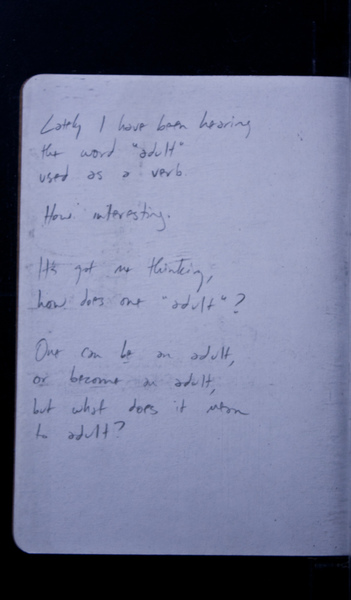 Lately I have been hearing
the word "adult"
used as a verb.
How interesting.
It's got me thinking,
how does one "adult"?
One can be an adult,
or become an adult,
but what does it mean
to adult?